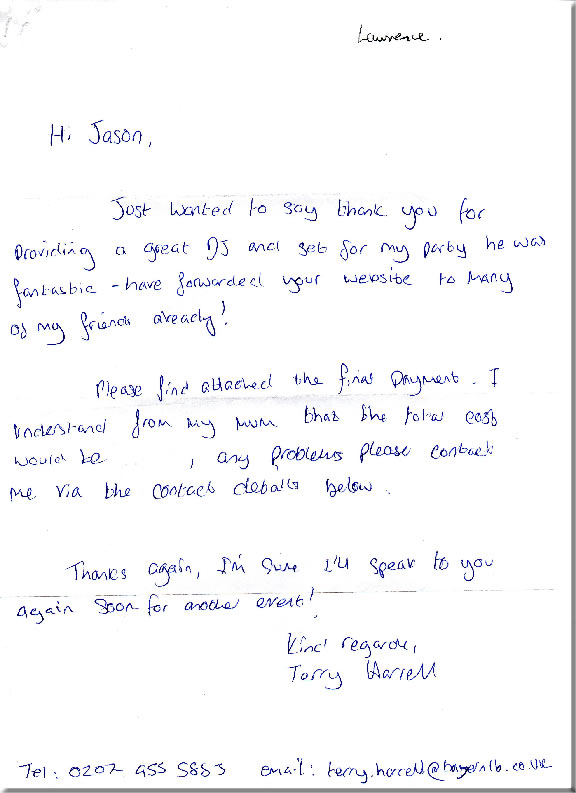 Lawrence.
Hi Jason,
Just wanted to say thank you for
providing a great DJ and set for my party he was
fantastic - have forwarded your website to many
of my friends already!
Please find attached the final payment. I
understand from my mum that the total cost
would be , any problems please contact
me via the contact details below.
Thanks again, I'm sure I'll speak to you
again soon for another event!
Kind regards,
Terry Harrell
Tel: 0207 955 5853 email: